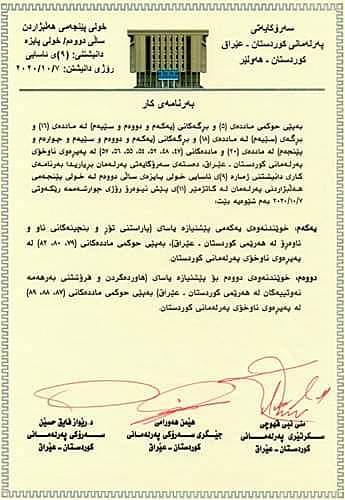 سەرۆکایەتی
پەرلەمانی کوردستان - عێراق
کوردستان - هەولێر
خولی پێنجەمی هەڵبژاردن
ساڵی دووەم/ خولی پایزە
دانیشتنی: (٩)ی ئاسایی
رۆژی دانیشتن/ ٢٠٢٠/١٠/٧
بەرنامەی کار
بەپێی حوکمی ماددەی (٥) و بڕگەکانی (یەکەم و دووەم و سێیەم) لە ماددەی (١٦) و
بڕگەی (سێیەم) لە ماددەی (١٨) و بڕگەکانی (یەکەم و دووەم و سێیەم و چوارەم و
پێنجەم) لە ماددەی (٢٠) و ماددەکانی (٤٧، ٤٨، ٥٢، ٥٤، ٥٥، ٥٦، ٥٧) لە پەیڕەوی ناوخۆی
پەرلەمانی کوردستان - عێراق، دەستەی سەرۆکایەتی پەرلەمان بڕیاریدا بەرنامەی
کاری دانیشتنی ژمارە (٩)ی ئاسایی خولی پایزەی ساڵی دووەم لە خولی پێنجەمی
هەڵبژاردنی پەرلەمان لە کاتژمێر (١١)ی پێش نیوەڕۆ رۆژی چوارشەممە رێکەوتی
٢٠٢٠/١٠/٧ بەم شێوەیە بێت:
یەکەم: خوێندنەوەی یەکەمی پێشنیازە یاسای (پاراستنی تۆڕ و بنچینەکانی ئاو و
ئاوەڕۆ لە هەرێمی کوردستان - عێراق)، بەپێی حوکمی ماددەکانی (٧٩، ٨٠، ٨٢) لە
پەیڕەوی ناوخۆی پەرلەمانی کوردستان.
دووەم: خوێندنەوەی دووەم بۆ پێشنیازە یاسای (هاوردەکردن و فرۆشتنی بەرهەمە
نەوتییەکان لە هەرێمی کوردستان - عێراق) بەپێی حوکمی ماددەکانی (٨٧، ٨٨، ٨٩)
لە پەیڕەوی ناوخۆی پەرلەمانی کوردستان.
منی نبی قهوچی
سکرتێری پەرلەمانی
کوردستان - عێراق
هێمن هەورامی
جێگری سەرۆکی پەرلەمانی
کوردستان - عێراق
د. رێواز فایق حسێن
سەرۆکی پەرلەمانی
کوردستان - عێراق